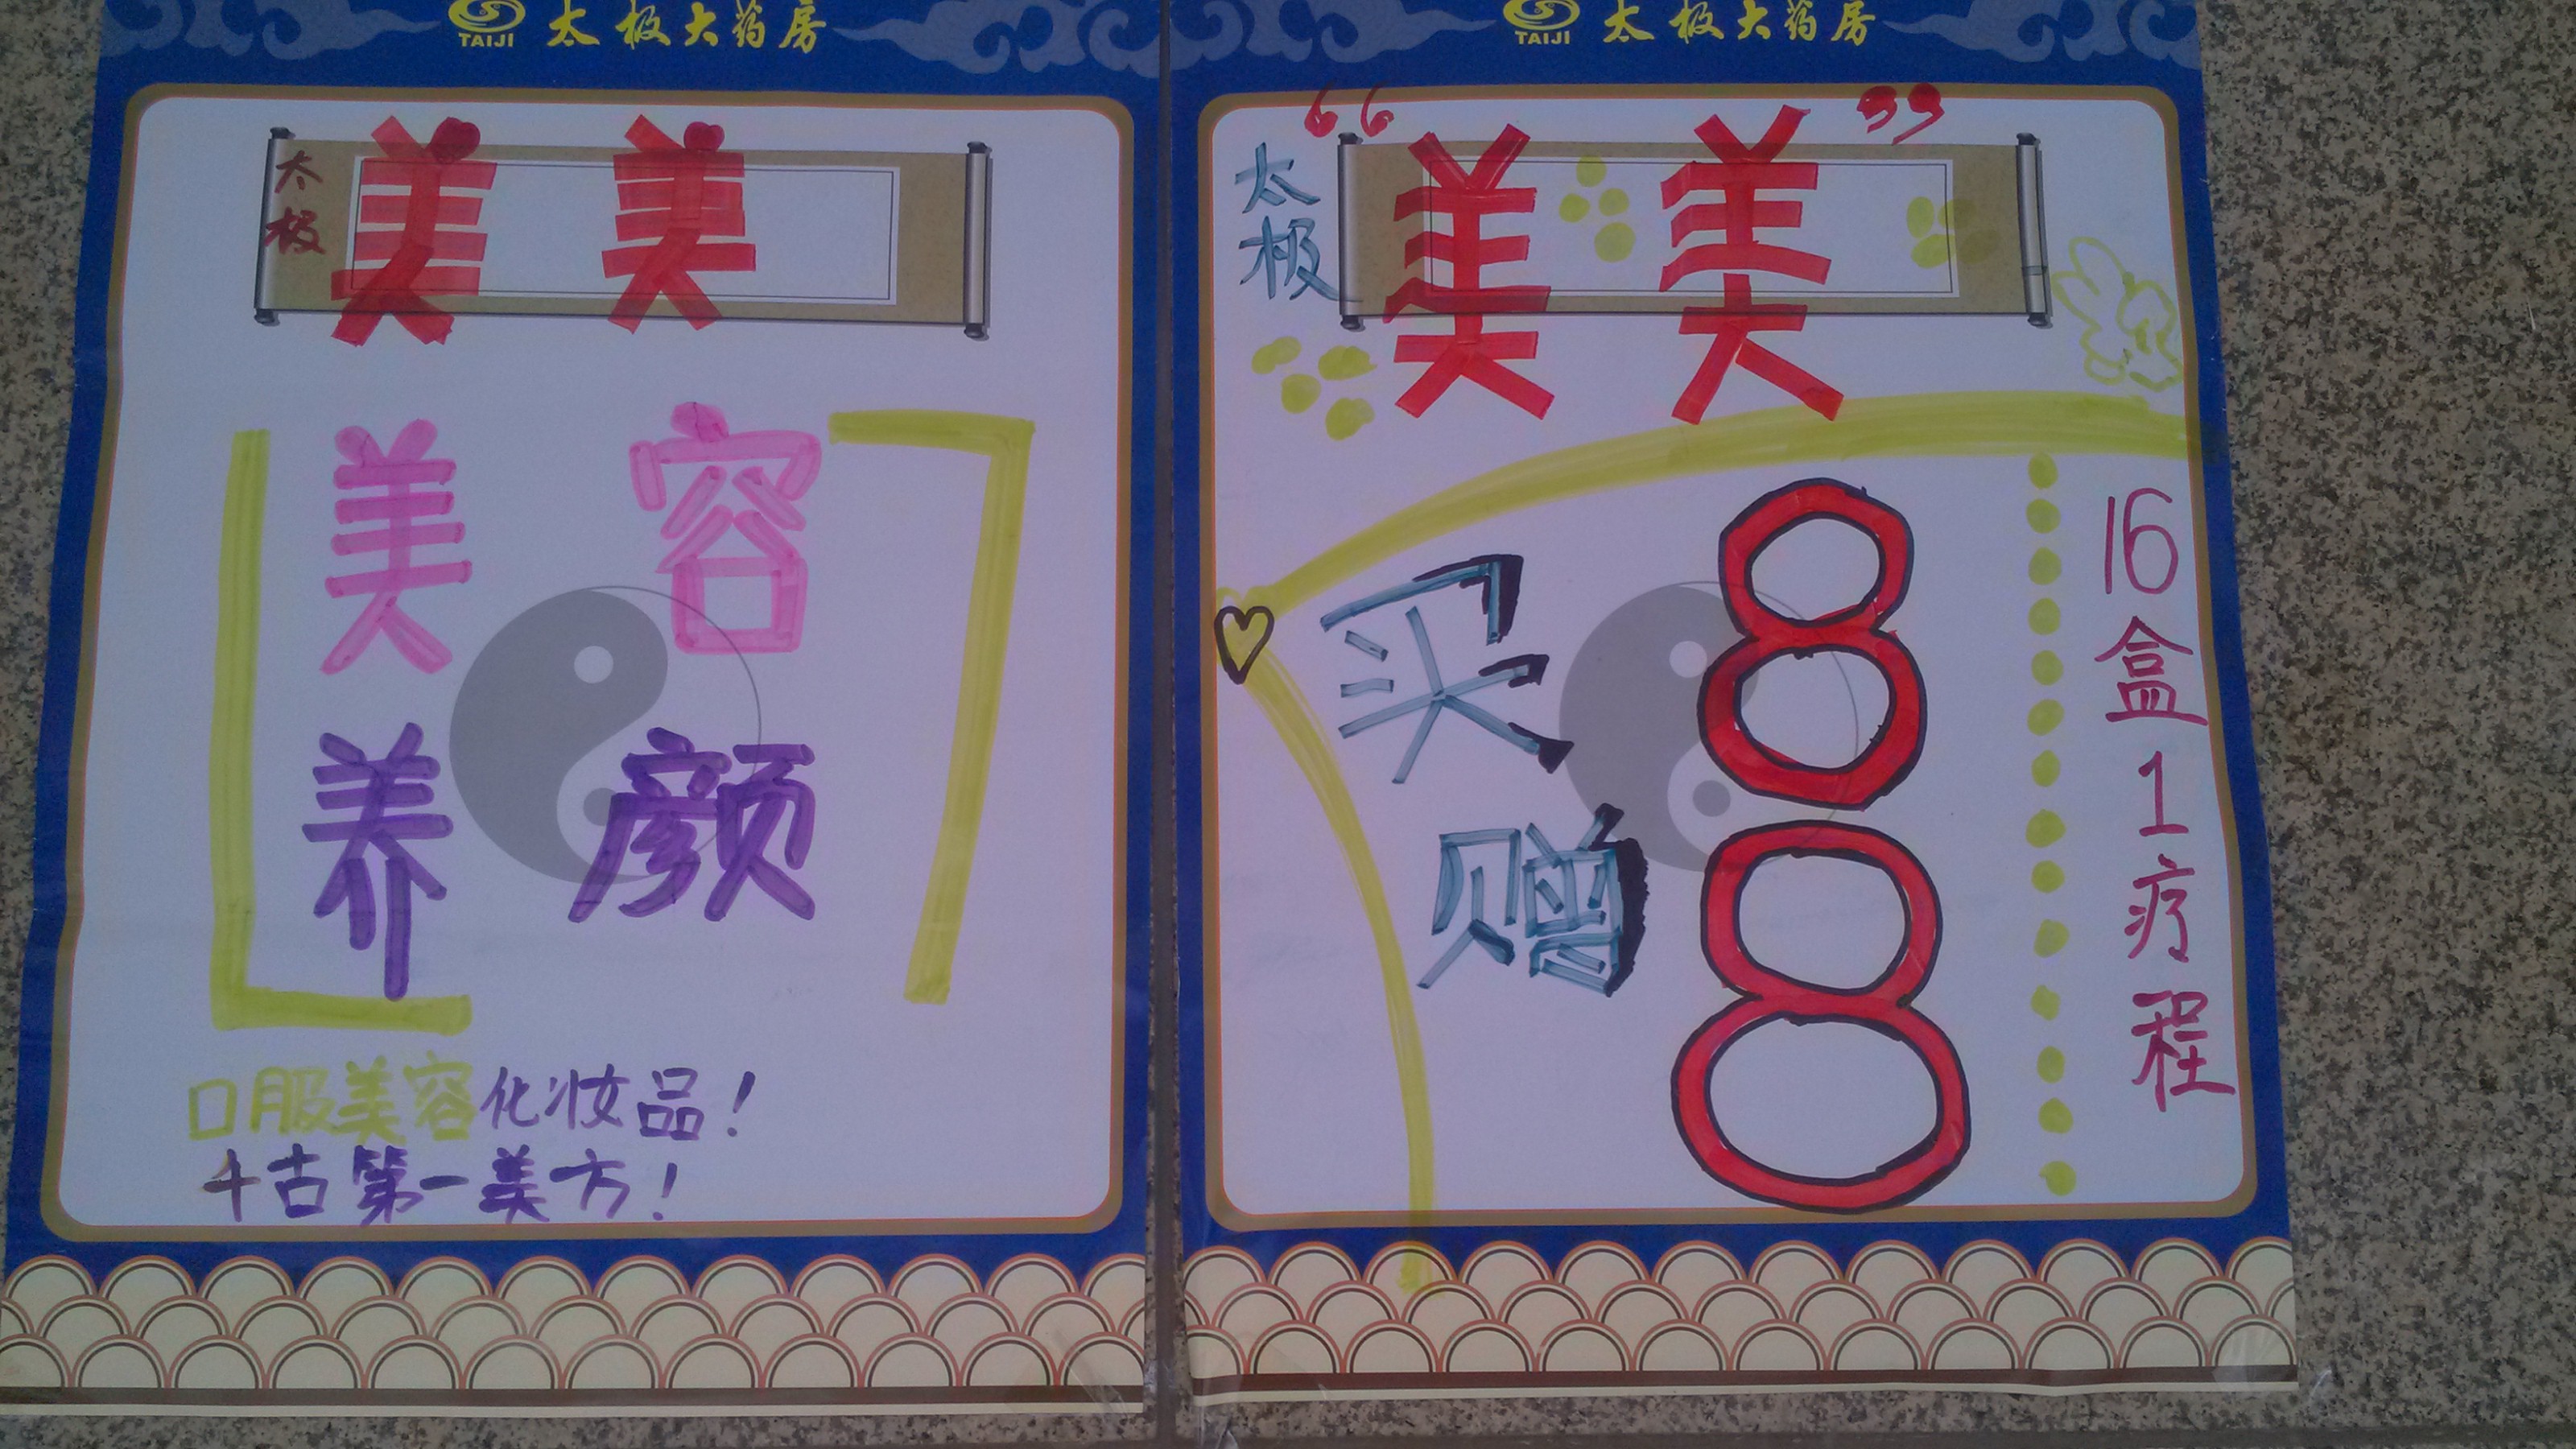 TAIJI 太极大药房
太极
美美
美容
养颜
口服美容化妆品！
千古第一美方！
TAIJI 太极大药房
太极
“美美”
买8
赠8
16盒1疗程